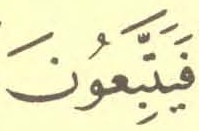 فَيَتَّبِعُونَ